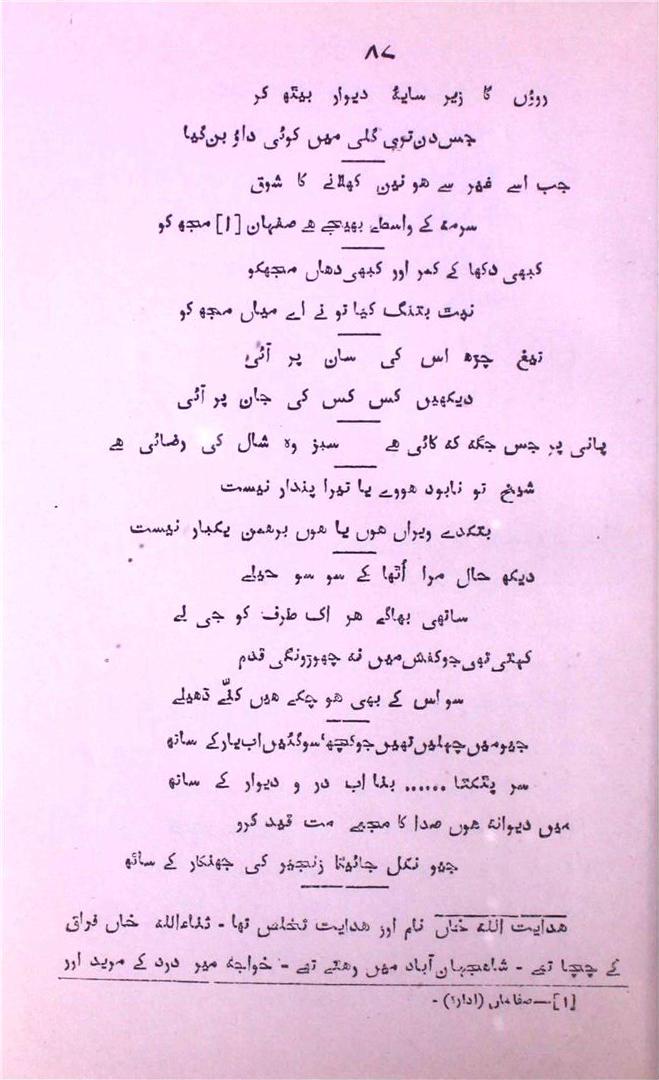 ۸۷
روؤں گا زیر سایۂ دیوار بیٹھ کر
جس دن تری گلی میں کوئی داؤ بن گیا
جب اسے غیر سے ہو نین کھلانے کا شوق
سرمہ کے واسطے بھیجے ہے صفہان [۱] مجھ کو
کبھی دکھا کے کمر اور کبھی دھاں مجھکو
نپٹ بتنگ کیا تو نے اے میاں مجھ کو
تیغ چڑھ اس کی سان پر آئی
دیکھیں کس کس کی جان پر آئی
پانی پر جس جگہ کہ کائی ہے سبز وہ شال کی رضائی ہے
شیخ تو نابود ہووے یا تیرا پندار نیست
بتکدے ویراں ہوں یا ہوں برہمن یکبار نیست
دیکھ حال مرا اُٹھا کے سو سو حیلے
ساتھی بھاگے ہر اک طرف کو جی لے
کہتی تھی جو کفش میں نہ چھوڑونگی قدم
سو اس کے بھی ہو چکے ہیں کتّے ڈھیلے
جیو میں چہلیں تھیں جو کچھ، سو گئیں اب یار کے ساتھ
سر پٹکنا ...... بنا اب در و دیوار کے ساتھ
میں دیوانہ ہوں صدا کا مجھے مت قید کرو
جیو نکل جائیگا زنجیر کی جھنکار کے ساتھ
ہدایت اللہ خاں نام اور ہدایت تخلص تھا - ثناءاللہ خاں فراق
کے چچا تھے - شاہجہان آباد میں رہتے تھے - خواجہ میر درد کے مرید اور
[۱] — صفاہاں (ادارہ) -